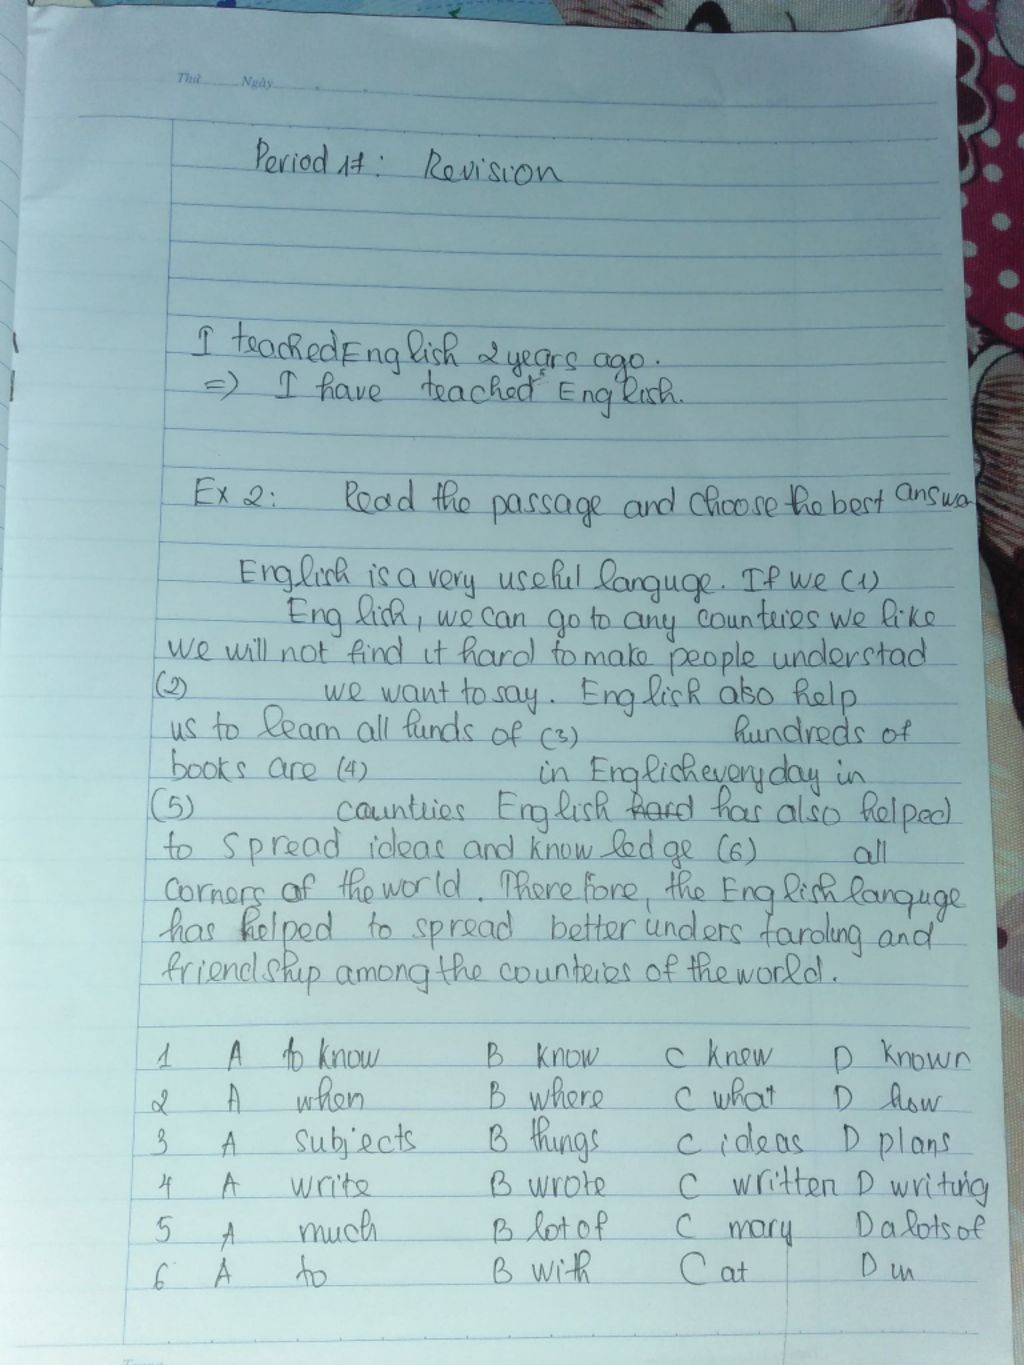 Thứ Ngày
Period 17: Revision
I teached English 2 years ago.
=> I have teached English.
Ex 2: Read the passage and choose the best answer
English is a very useful languge. If we (1)
English, we can go to any counteries we like
we will not find it hard to make people understad
(2) we want to say. English also help
us to learn all funds of (3) hundreds of
books are (4) in Englich everyday in
(5) counteies English hard has also helped
to spread ideas and knowledge (6) all
corners of the world. Therefore, the English languge
has helped to spread better understarding and
friendship among the counteries of the world.
1 A to know B know C knew D known
2 A when B where C what D how
3 A subjects B things C ideas D plans
4 A write B wrote C written D writing
5 A much B lot of C many D a lots of
6 A to B with C at D in